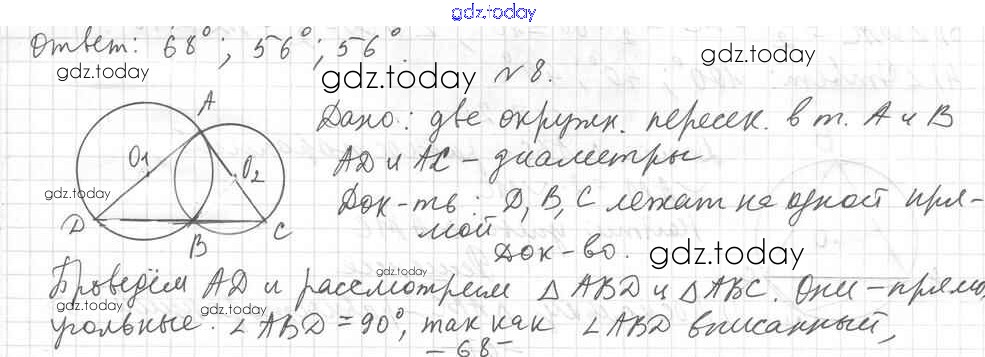 gdz.today
Ответ: 68°; 56°; 56°.
gdz.today
gdz.today
gdz.today
№8.
A
O₁
O₂
gdz.today
D
B
C
Дано: две окружн. пересек. в т. A и B
AD и AC – диаметры
Док-ть: D, B, C лежат на одной пря-
мой
Док-во.
gdz.today
Проведём AD и рассмотрим △ ABD и △ABC. Они – прямо
gdz.today
gdz.today
gdz.today
угольные. ∠ABD = 90°, так как ∠ABD вписанный,
– 68 –